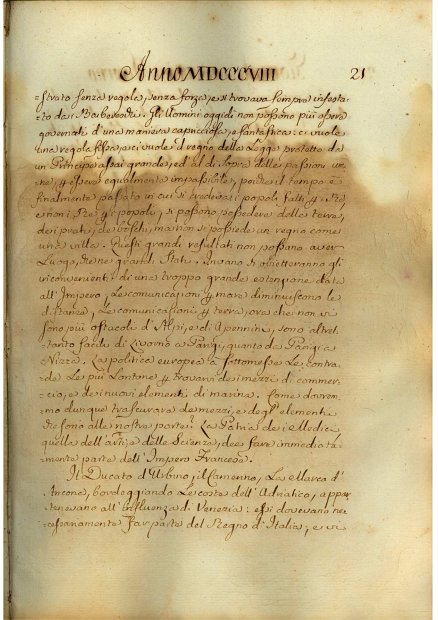 Anno MDCCCVIII 21
=strato senza regola, senza forza, e si trovava sempre infesta=
to da' Barbereschi. Gli Uomini oggidì non possono più essere
governati d'una maniera capricciosa, e fantastica: ci vuole
una regola fissa, e ci vuole il regno della Legge protetto da
un Principe assai grande, ed al di sopra delle passioni
per essere equalmente impassibile, poiche il tempo è
finalmente passato in cui si credevasi i popoli fatti per i Rè
e non i Re per i popoli, si possono possedere delle terre,
dei prati, de' boschi, ma non si possiede un regno come
una villa. Questi grandi resultati non possano aver
Luogo, che ne' grandi Stati. Invano si obietteranno gli
inconvenienti di una troppo grande estensione data
all'Impero. Le comunicazioni per mare diminuiscono le
distanze, Le comunicazioni per terra, ora che non vi
sono più ostacoli d'Alpi, e di Apennini, sono altret=
=tanto facili da Livorno a Parigi, quanto da Parigi a
Nizza. La politica europea à sottomesse Le contra=
=de Le più Lontane per trovarvi dei mezzi di commer=
=cio, e dei nuovi elementi di marina. Come dovrem=
=mo dunque trascurare de' mezzi, e degli elementi
che sono alle nostre porte? La Patria dei Medici
quella dell'arti, e delle Scienze, dee fare immediata=
=mente parte dell'Impero Francese.
Il Ducato d'Urbino, il Camerino, La Marca d'
Ancona, bordeggiando Le coste dell'Adriatico, appar
tenevano all'Influenza di Venezia: essi dovevano ne=
cessariamente far parte del Regno d'Italia; e vi